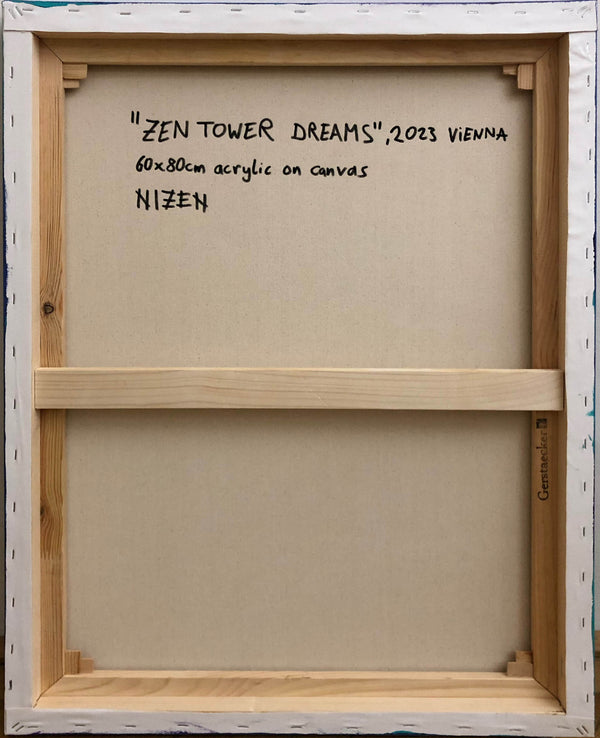 "ZEN TOWER DREAMS", 2023 ViENNA
60x80cm acrylic on canvas
NIZEN
Gerstaecker